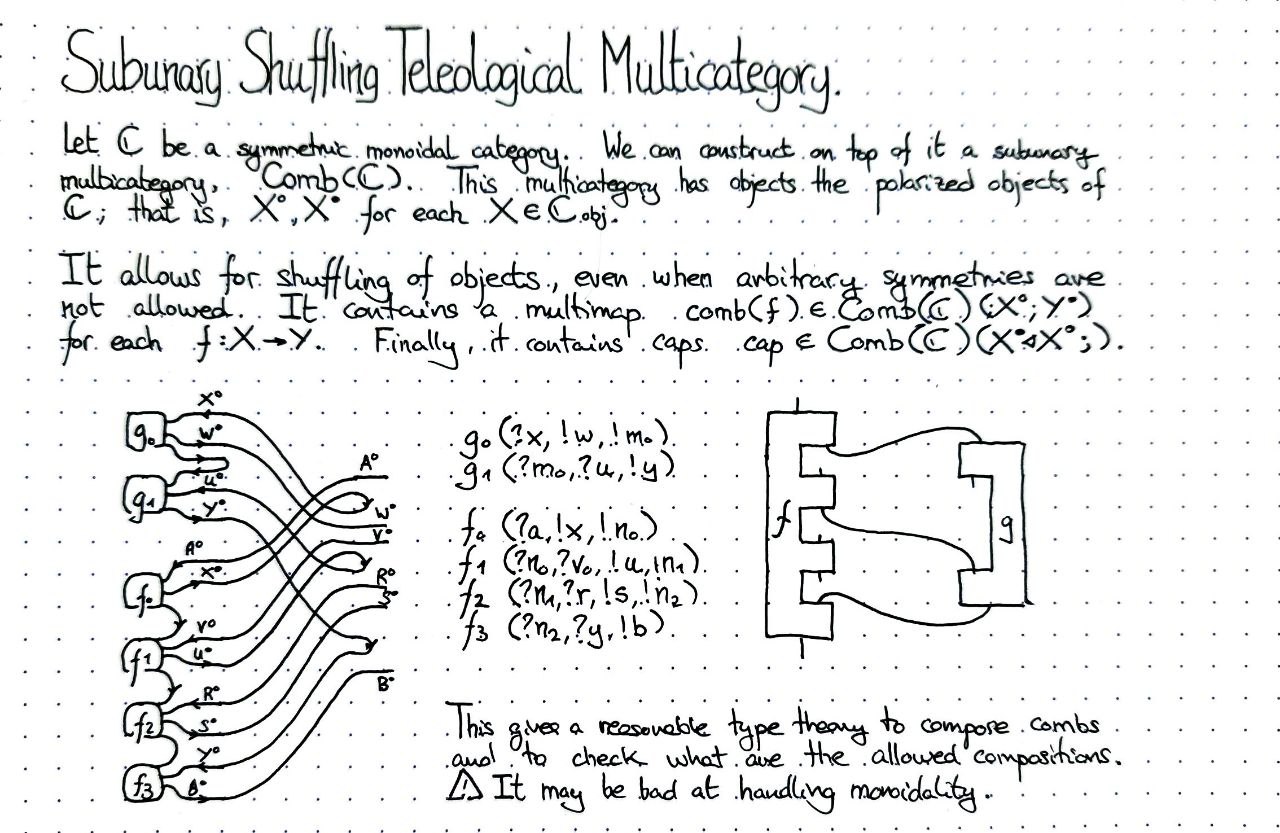 Subunary Shuffling Teleological Multicategory.
Let ℂ be a symmetric monoidal category. We can construct on top of it a subunary
multicategory, Comb(ℂ). This multicategory has objects the polarized objects of
ℂ; that is, X°, X• for each X ∈ ℂobj.
It allows for shuffling of objects, even when arbitrary symmetries are
not allowed. It contains a multimap comb(f) ∈ Comb(ℂ)(;X°;Y•)
for each f: X → Y. Finally, it contains caps cap ∈ Comb(ℂ)(X•◁X°;).
X°
g₀
W•
u°
g₁
Y•
A°
X•
f₀
V°
u•
f1
R°
f2
S•
Y°
f3
B•
A°
W•
V°
R°
S•
B•
g₀ (?x, !w, !m₀)
g₁ (?m₀, ?u, !y)
f₀ (?a, !x, !n₀)
f1 (?n₀, ?v₀, !u, !n₁)
f2 (?n₁, ?r, !s, !n₂)
f3 (?n₂, ?y, !b)
f
g
This gives a reasonable type theory to compose combs
and to check what are the allowed compositions.
⚠ It may be bad at handling monoidality.